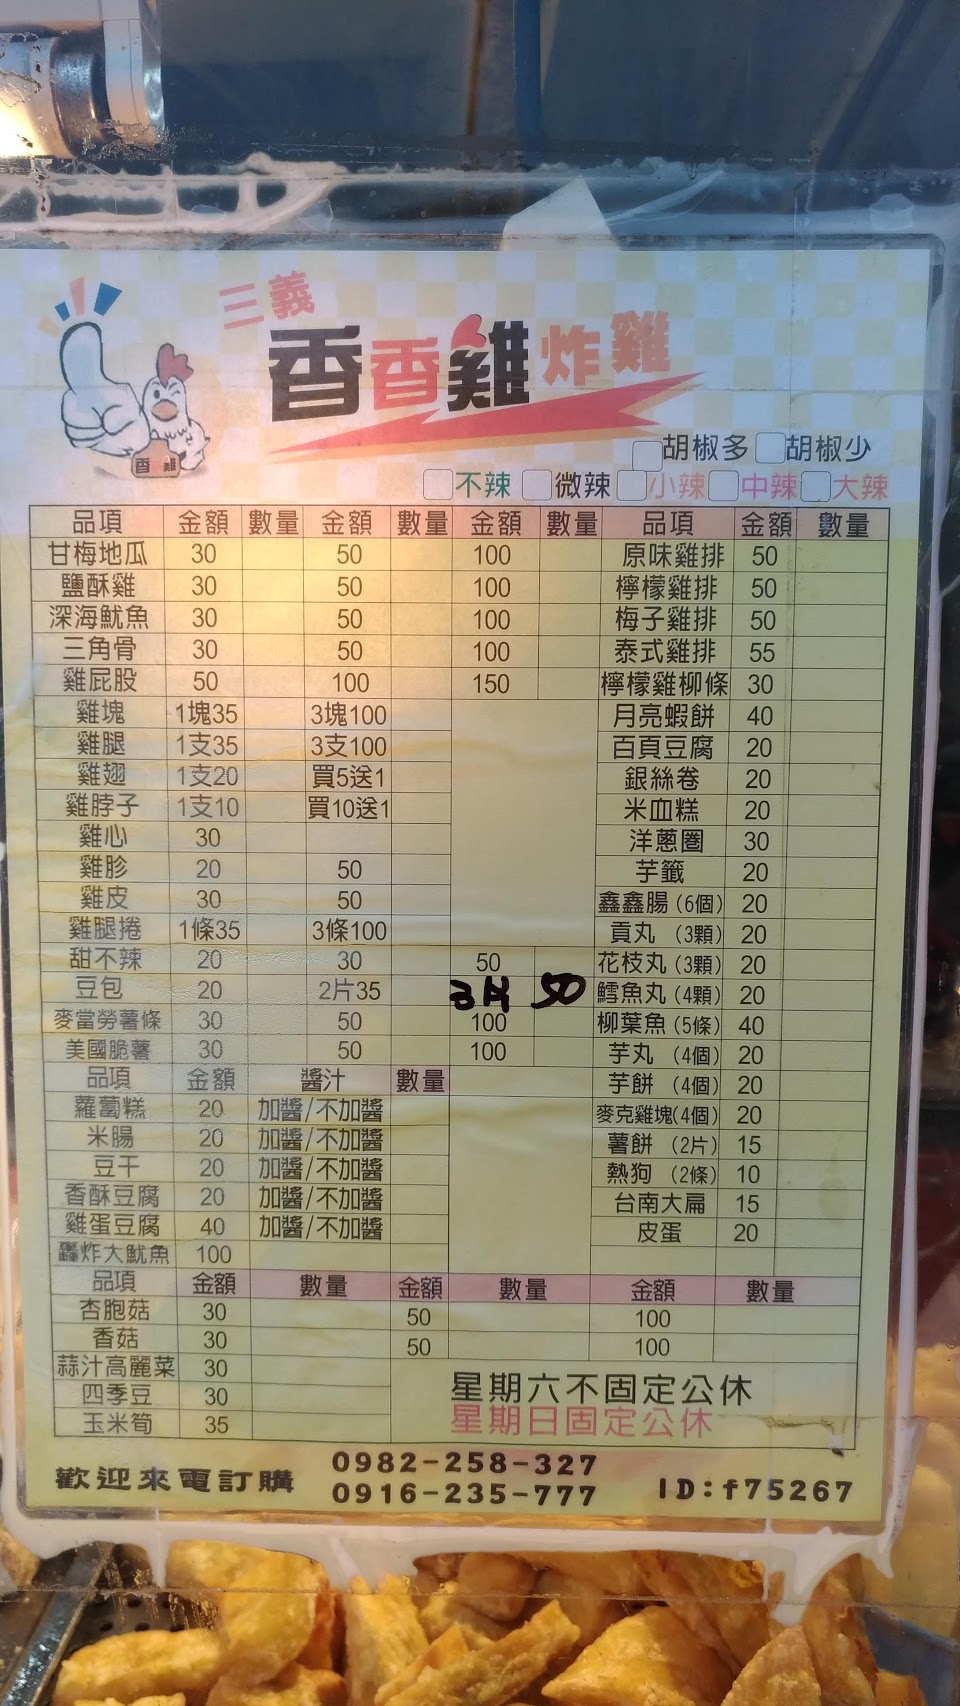 三義
香香雞炸雞
香香雞
胡椒多 胡椒少
不辣 微辣 小辣 中辣 大辣
品項 金額 數量 金額 數量 金額 數量 品項 金額 數量
甘梅地瓜 30 50 100 原味雞排 50
鹽酥雞 30 50 100 檸檬雞排 50
深海魷魚 30 50 100 梅子雞排 50
三角骨 30 50 100 泰式雞排 55
雞屁股 50 100 150 檸檬雞柳條 30
雞塊 1塊35 3塊100 月亮蝦餅 40
雞腿 1支35 3支100 百頁豆腐 20
雞翅 1支20 買5送1 銀絲卷 20
雞脖子 1支10 買10送1 米血糕 20
雞心 30 洋蔥圈 30
雞胗 20 50 芋籤 20
雞皮 30 50 鑫鑫腸(6個) 20
雞腿捲 1條35 3條100 貢丸 (3顆) 20
甜不辣 20 30 50 花枝丸(3顆) 20
豆包 20 2片35 3片 50 鱈魚丸(4顆) 20
麥當勞薯條 30 50 100 柳葉魚(5條) 40
美國脆薯 30 50 100 芋丸 (4個) 20
品項 金額 醬汁 數量 芋餅 (4個) 20
蘿蔔糕 20 加醬/不加醬 麥克雞塊(4個) 20
米腸 20 加醬/不加醬 薯餅 (2片) 15
豆干 20 加醬/不加醬 熱狗 (2條) 10
香酥豆腐 20 加醬/不加醬 台南大扁 15
雞蛋豆腐 40 加醬/不加醬 皮蛋 20
轟炸大魷魚 100
品項 金額 數量 金額 數量 金額 數量
杏胞菇 30 50 100
香菇 30 50 100
蒜汁高麗菜 30
四季豆 30
玉米筍 35
星期六不固定公休
星期日固定公休
歡迎來電訂購 0982-258-327
0916-235-777 ID:f75267